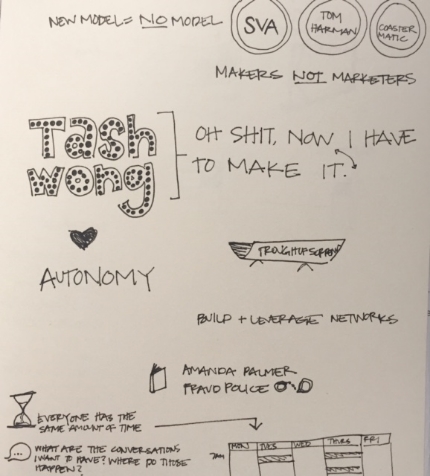 NEW MODEL = NO MODEL
SVA
TOM
HARMAN
COASTER
MATIC
MAKERS NOT MARKETERS
Tash
wong
OH SHIT, NOW I HAVE
TO MAKE IT.
AUTONOMY
TROUGH OF SORROW
BUILD + LEVERAGE NETWORKS
AMANDA PALMER
FRAUD POLICE
EVERYONE HAS THE
SAME AMOUNT OF TIME
WHAT ARE THE CONVERSATIONS
I WANT TO HAVE? WHERE DO THOSE
HAPPEN?
MON TUES WED THURS FRI